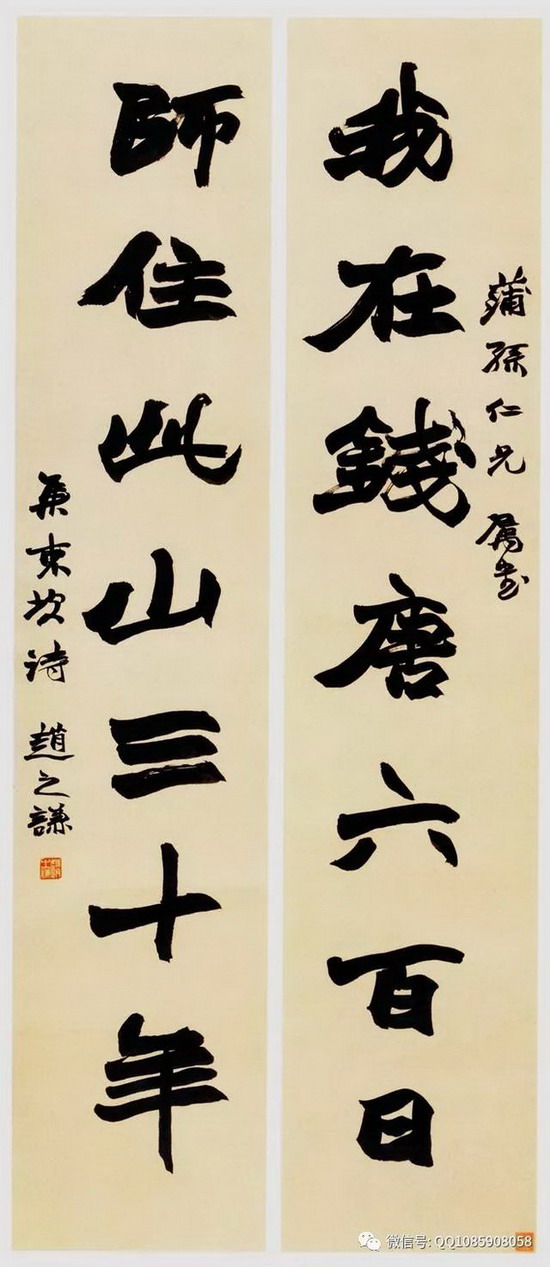 我在錢唐六百日
蒲孫仁兄屬書
師住此山三十年
集東坡詩 趙之謙
微信号: QQ1085908058